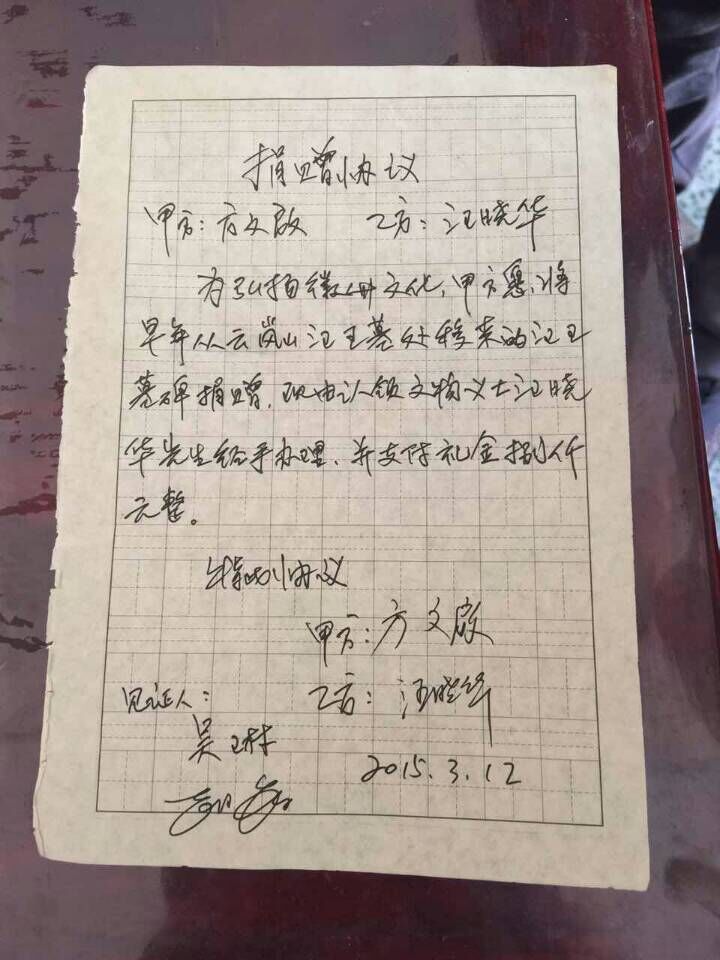 捐赠协议
甲方：方文啟 乙方：汪晓华
为弘扬徽州文化，甲方愿将
早年从云岚山汪王墓处移来的汪王
墓碑捐赠，现由认领文物义士汪晓
华先生经手办理，并支付礼金捌仟
元整。
特此协议
甲方：方文啟
见证人： 乙方：汪晓华
吴
2015.3.12